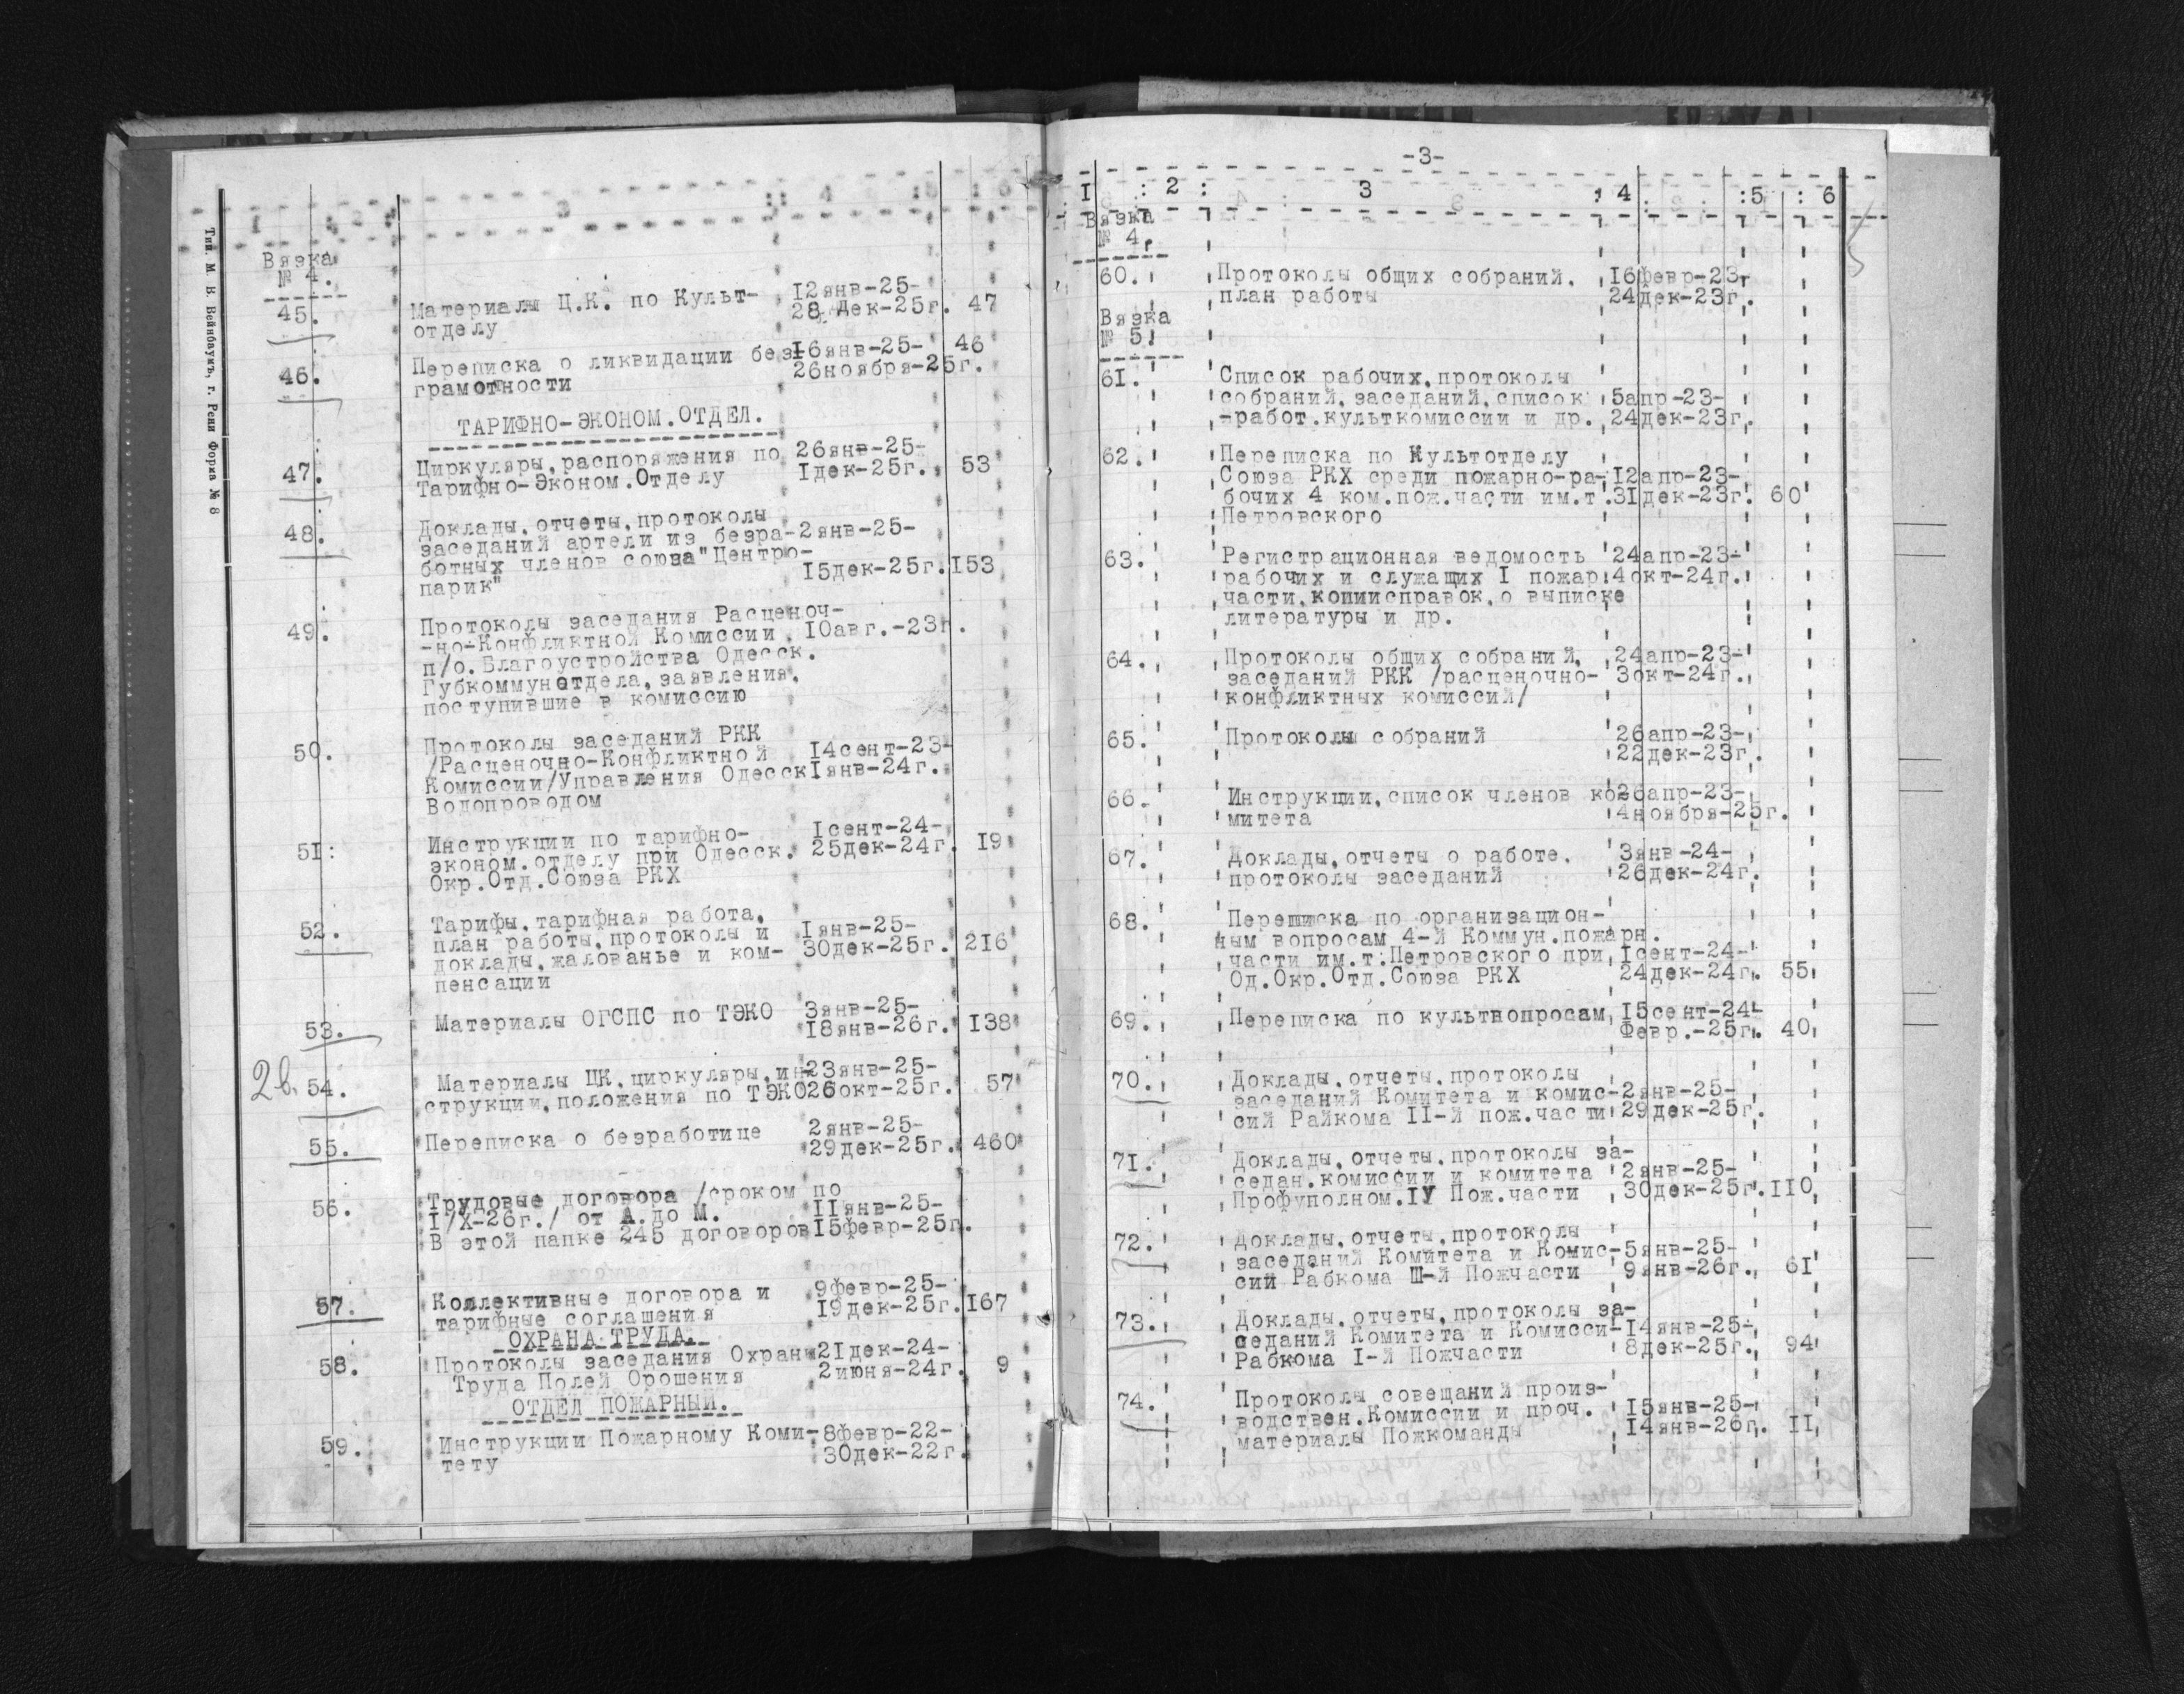 Тип. М. В. Вейнбаумъ, г. Рени Форма № 8
1 : 2 : 3 : 4 : 5 : 6
Вязка
№ 4.
45. Материалы Ц.К. по Культ- 12янв-25-
отделу 28 Дек-25г. 47
46. Переписка о ликвидации без- 16янв-25- 46
грамотности 26ноября-25г.
ТАРИФНО-ЭКОНОМ.ОТДЕЛ.
47. Циркуляры,распоряжения по 26янв-25-
Тарифно-Эконом.Отделу 1дек-25г. 53
48. Доклады,отчеты,протоколы
заседаний артели из безра- 2янв-25-
ботных членов союза"Центро-
парик" 15дек-25г. 153
49. Протоколы заседания Расценоч-
-но-Конфликтной Комиссии 10авг.-23г.
п/о.Благоустройства Одесск.
Губкоммунотдела,заявления,
поступившие в комиссию
50. Протоколы заседаний РКК
/Расценочно-Конфликтной 14сент-23-
Комиссии/Управления Одесск 1янв-24г.
Водопроводом
51: Инструкции по тарифно- 1сент-24-
эконом.отделу при Одесск. 25дек-24г. 19
Окр.Отд.Союза РКХ
52. Тарифы,тарифная работа,
план работы,протоколы и 1янв-25-
доклады,жалованье и ком- 30дек-25г. 216
пенсации
53. Материалы ОГСПС по ТЭКО 3янв-25-
18янв-26г. 138
2в. 54. Материалы ЦК,циркуляры,ин- 23янв-25-
струкции,положения по ТЭКО 26окт-25г. 57
55. Переписка о безработице 2янв-25-
29дек-25г. 460
56. Трудовые договора /сроком по
I/X-26г./ от А.до М. 11янв-25-
В этой папке 245 договоров 15февр-25г.
57. Коллективные договора и 9февр-25-
тарифные соглашения 19дек-25г. 167
ОХРАНА ТРУДА.
58. Протоколы заседания Охраны 21дек-24-
Труда Полей Орошения 2июня-24г. 9
ОТДЕЛ ПОЖАРНЫЙ.
59. Инструкции Пожарному Коми- 8февр-22-
тету 30дек-22г.
-3-
I : 2 : 3 : 4 :5 : 6
Вязка
№ 4.
60. Протоколы общих собраний, 16февр-23-
план работы 24дек-23г.
Вязка
№ 5.
61. Список рабочих,протоколы
собраний,заседаний,список 5апр-23-
-работ.культкомиссии и др. 24дек-23г.
62. Переписка по Культотделу
Союза РКХ среди пожарно-ра- 12апр-23-
бочих 4 ком.пож.части им.т. 31дек-23г. 60
Петровского
63. Регистрационная ведомость 24апр-23-
рабочих и служащих I пожар 4окт-24г.
части,копиисправок,о выписке
литературы и др.
64. Протоколы общих собраний, 24апр-23-
заседаний РКК /расценочно- 3окт-24г.
конфликтных комиссий/
65. Протоколы собраний 26апр-23-
22дек-23г.
66. Инструкции,список членов ко- 26апр-23-
митета 4ноября-25г.
67. Доклады,отчеты о работе, 3янв-24-
протоколы заседаний 26дек-24г.
68. Переписка по организацион-
ным вопросам 4-й Коммун.пожарн.
части им.т.Петровского при 1сент-24-
Од.Окр.Отд.Союза РКХ 24дек-24г. 55
69. Переписка по культвопросам 15сент-24-
Февр.-25г. 40
70. Доклады,отчеты,протоколы
заседаний Комитета и комис- 2янв-25-
сий Райкома II-й пож.части 29дек-25г.
71. Доклады,отчеты,протоколы за-
седан.комиссии и комитета 2янв-25-
Профуполном.IУ Пож.части 30дек-25г. 110
72. Доклады,отчеты,протоколы
заседаний Комитета и Комис- 5янв-25-
сий Рабкома Ш-й Пожчасти 9янв-26г. 61
73. Доклады,отчеты,протоколы за-
седаний Комитета и Комисси- 14янв-25-
Рабкома I-й Пожчасти 8дек-25г. 94
74. Протоколы совещаний произ-
водствен.Комиссии и проч. 15янв-25-
материалы Пожкоманды 14янв-26г. 11